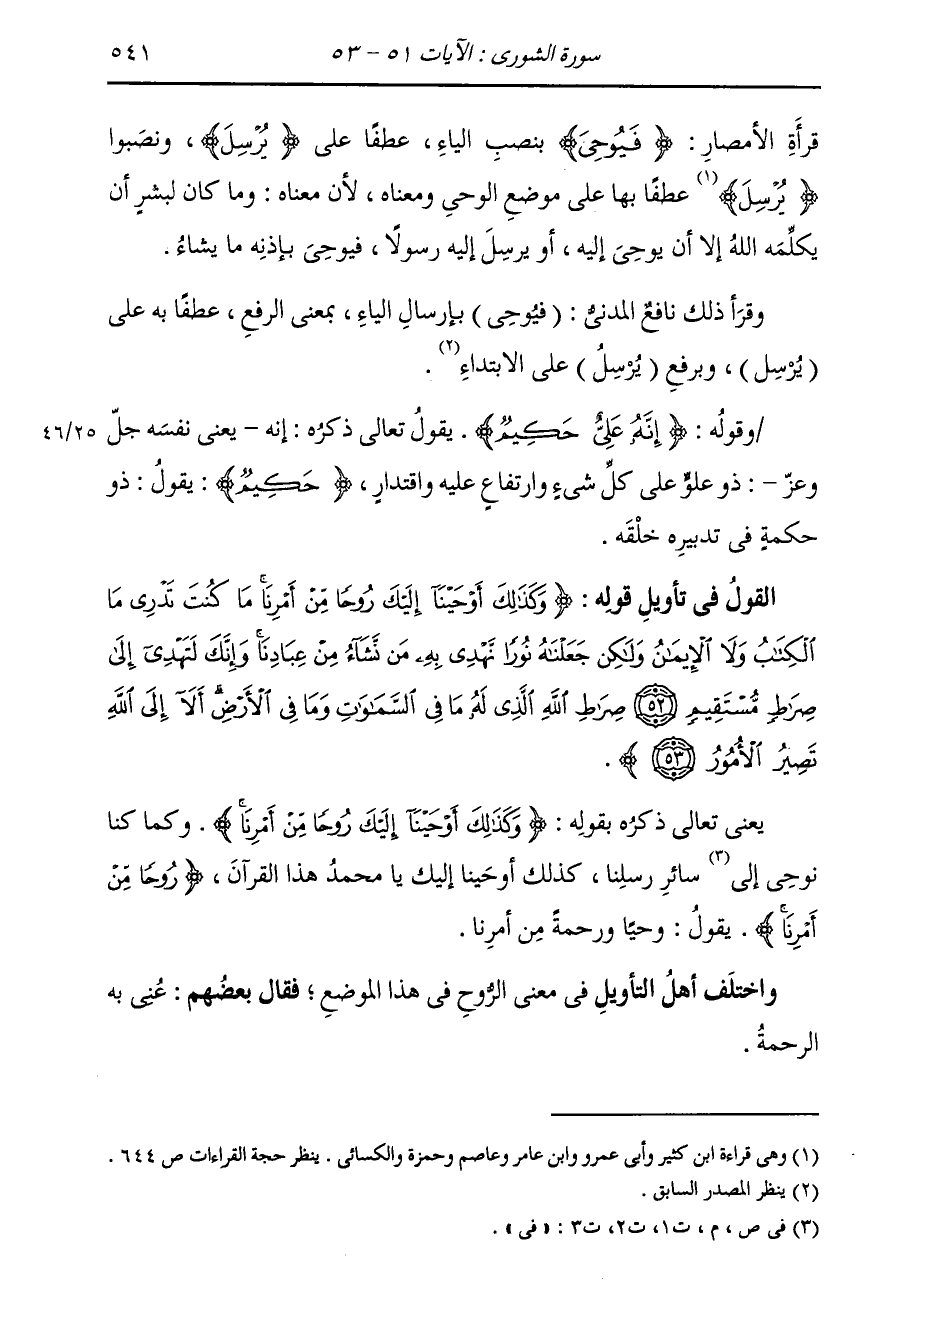 سورة الشورى : الآيات ٥١ - ٥٣ ٥٤١
قرأَةِ الأمصارِ : ﴿ فَيُوحِىَ﴾ بنصبِ الياءِ ، عطفًا على ﴿ يُرْسِلَ﴾ ، ونصَبوا
﴿ يُرْسِلَ﴾(١) عطفًا بها على موضعِ الوحيِ ومعناه ، لأن معناه : وما كان لبشرٍ أن
يكلِّمَه اللهُ إلا أن يوحِىَ إليه ، أو يرسِلَ إليه رسولًا ، فيوحِىَ بإذنِه ما يشاءُ .
وقرَأ ذلك نافعٌ المدنىُّ : ( فيُوحِى ) بإرسالِ الياءِ ، بمعنى الرفعِ ، عطفًا به على
( يُرْسِل ) ، وبرفعِ ( يُرْسِلُ ) على الابتداءِ(٢) .
/وقولُه : ﴿ إِنَّهُۥ عَلِىٌّ حَكِيمٌ﴾ . يقولُ تعالى ذكرُه : إنه - يعنى نفسَه جلّ ٤٦/٢٥
وعزّ - : ذو علوٍّ على كلِّ شىءٍ وارتفاعٍ عليه واقتدارٍ ، ﴿ حَكِيمٌ﴾ : يقولُ : ذو
حكمةٍ فى تدبيرِه خلْقَه .
القولُ فى تأويلِ قولِه : ﴿ وَكَذَٰلِكَ أَوْحَيْنَآ إِلَيْكَ رُوحًا مِّنْ أَمْرِنَا ۚ مَا كُنتَ تَدْرِى مَا
ٱلْكِتَٰبُ وَلَا ٱلْإِيمَٰنُ وَلَٰكِن جَعَلْنَٰهُ نُورًا نَّهْدِى بِهِۦ مَن نَّشَآءُ مِنْ عِبَادِنَا ۚ وَإِنَّكَ لَتَهْدِىٓ إِلَىٰ
صِرَٰطٍ مُّسْتَقِيمٍ ٥٢ صِرَٰطِ ٱللَّهِ ٱلَّذِى لَهُۥ مَا فِى ٱلسَّمَٰوَٰتِ وَمَا فِى ٱلْأَرْضِ ۗ أَلَآ إِلَى ٱللَّهِ
تَصِيرُ ٱلْأُمُورُ ٥٣ ﴾ .
يعنى تعالى ذكرُه بقولِه : ﴿ وَكَذَٰلِكَ أَوْحَيْنَآ إِلَيْكَ رُوحًا مِّنْ أَمْرِنَا ۚ ﴾ . وكما كنا
نوحِى إلى(٣) سائرِ رسلِنا ، كذلك أوحَينا إليك يا محمدُ هذا القرآنَ ، ﴿ رُوحًا مِّنْ
أَمْرِنَا ۚ ﴾ . يقولُ : وحيًا ورحمةً مِن أمرِنا .
واختلَف أهلُ التأويلِ فى معنى الرُّوحِ فى هذا الموضعِ ؛ فقال بعضُهم : عُنِى به
الرحمةُ .
(١) وهى قراءة ابن كثير وأبى عمرو وابن عامر وعاصم وحمزة والكسائى . ينظر حجة القراءات ص ٦٤٤ .
(٢) ينظر المصدر السابق .
(٣) فى ص ، م ، ت١، ت٢، ت٣ : « فى » .